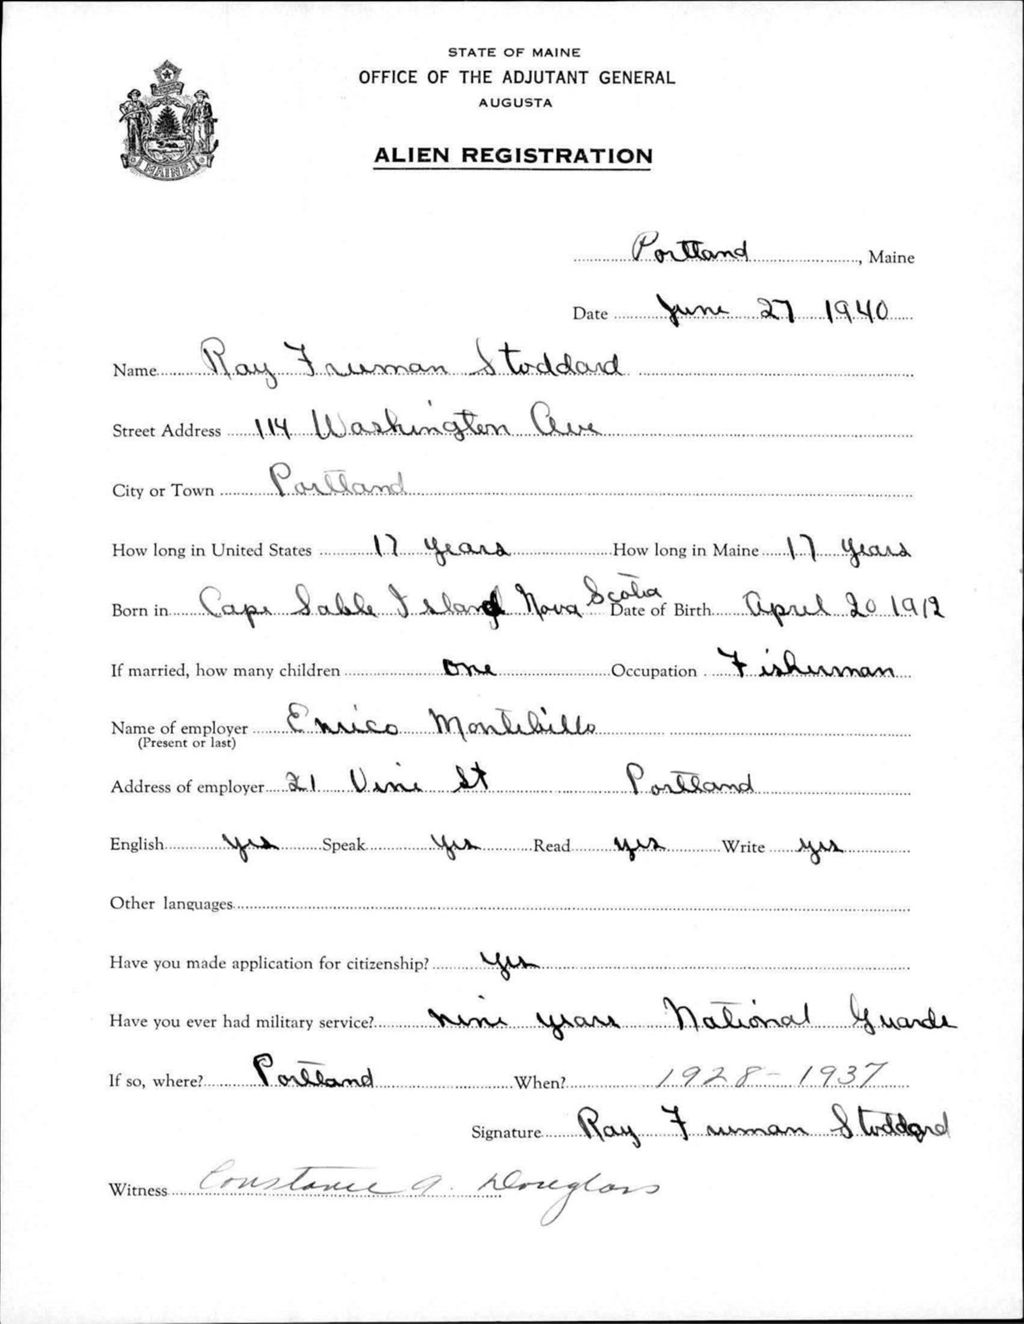 STATE OF MAINE
OFFICE OF THE ADJUTANT GENERAL
AUGUSTA
ALIEN REGISTRATION
MAINE
Portland, Maine
Date June 27 1940
Name Ray Freeman Stoddard
Street Address 114 Washington Ave
City or Town Portland
How long in United States 17 years How long in Maine 17 years
Born in Cape Sable Island Nova Scotia Date of Birth April 20 1912
If married, how many children one Occupation Fisherman
Name of employer Enrico Montebillo
(Present or last)
Address of employer 21 Vine St Portland
English yes Speak yes Read yes Write yes
Other languages
Have you made application for citizenship? yes
Have you ever had military service? nine years National Guards
If so, where? Portland When? 1928 - 1937
Signature Ray Freeman Stoddard
Witness Constance A. Douglass